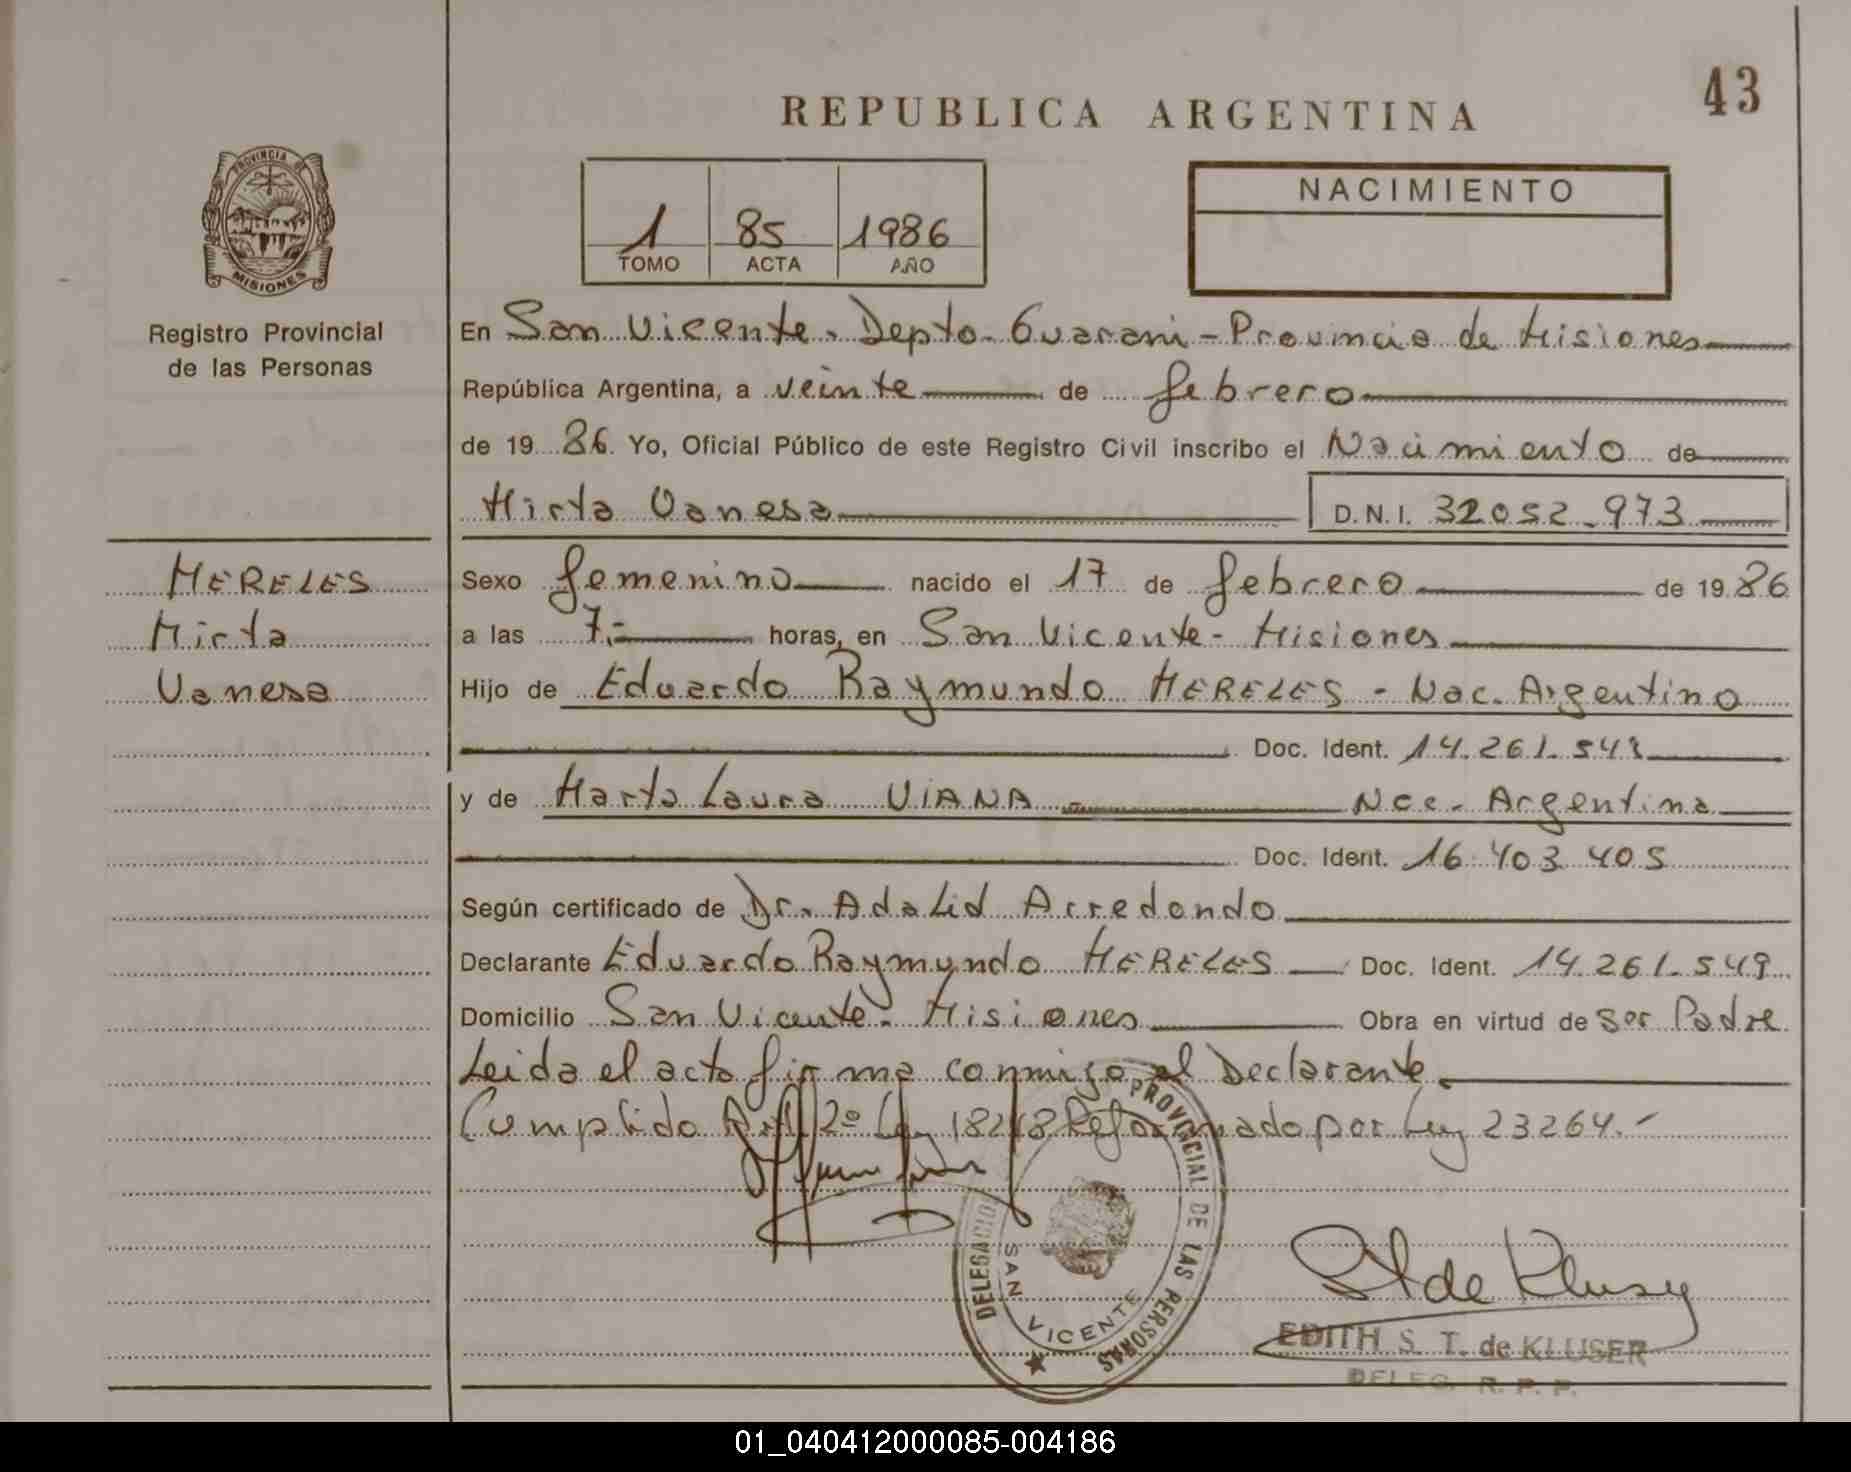 43
REPUBLICA ARGENTINA
PROVINCIA DE
MISIONES
Registro Provincial
de las Personas
1 85 1986
TOMO ACTA AÑO
NACIMIENTO
En San Vicente - Depto - Guarani - Provincia de Misiones
República Argentina, a veinte de febrero
de 19 86. Yo, Oficial Público de este Registro Civil inscribo el Nacimiento de
Mirta Vanesa D.N.I. 32052.973
MERELES
Mirta
Vanesa
Sexo femenino nacido el 17 de febrero de 19 86
a las 7.- horas, en San Vicente - Misiones
Hijo de Eduardo Raymundo MERELES - Nac. Argentino
Doc. Ident. 14.261.549
y de Marta Laura VIANA - Nac. Argentina
Doc. Ident. 16 403 405
Según certificado de Dr. Adalid Arredondo
Declarante Eduardo Raymundo MERELES Doc. Ident. 14.261.549
Domicilio San Vicente - Misiones Obra en virtud de Ser Padre
Leida el acta firma conmigo el Declarante.
Cumplido Art. 2º Ley 18248 Reformado por Ley 23264.-
DELEGACION PROVINCIAL DE LAS PERSONAS
SAN VICENTE
EDITH S. T. de KLUSER
DELEG. R. P. P.
01_040412000085-004186